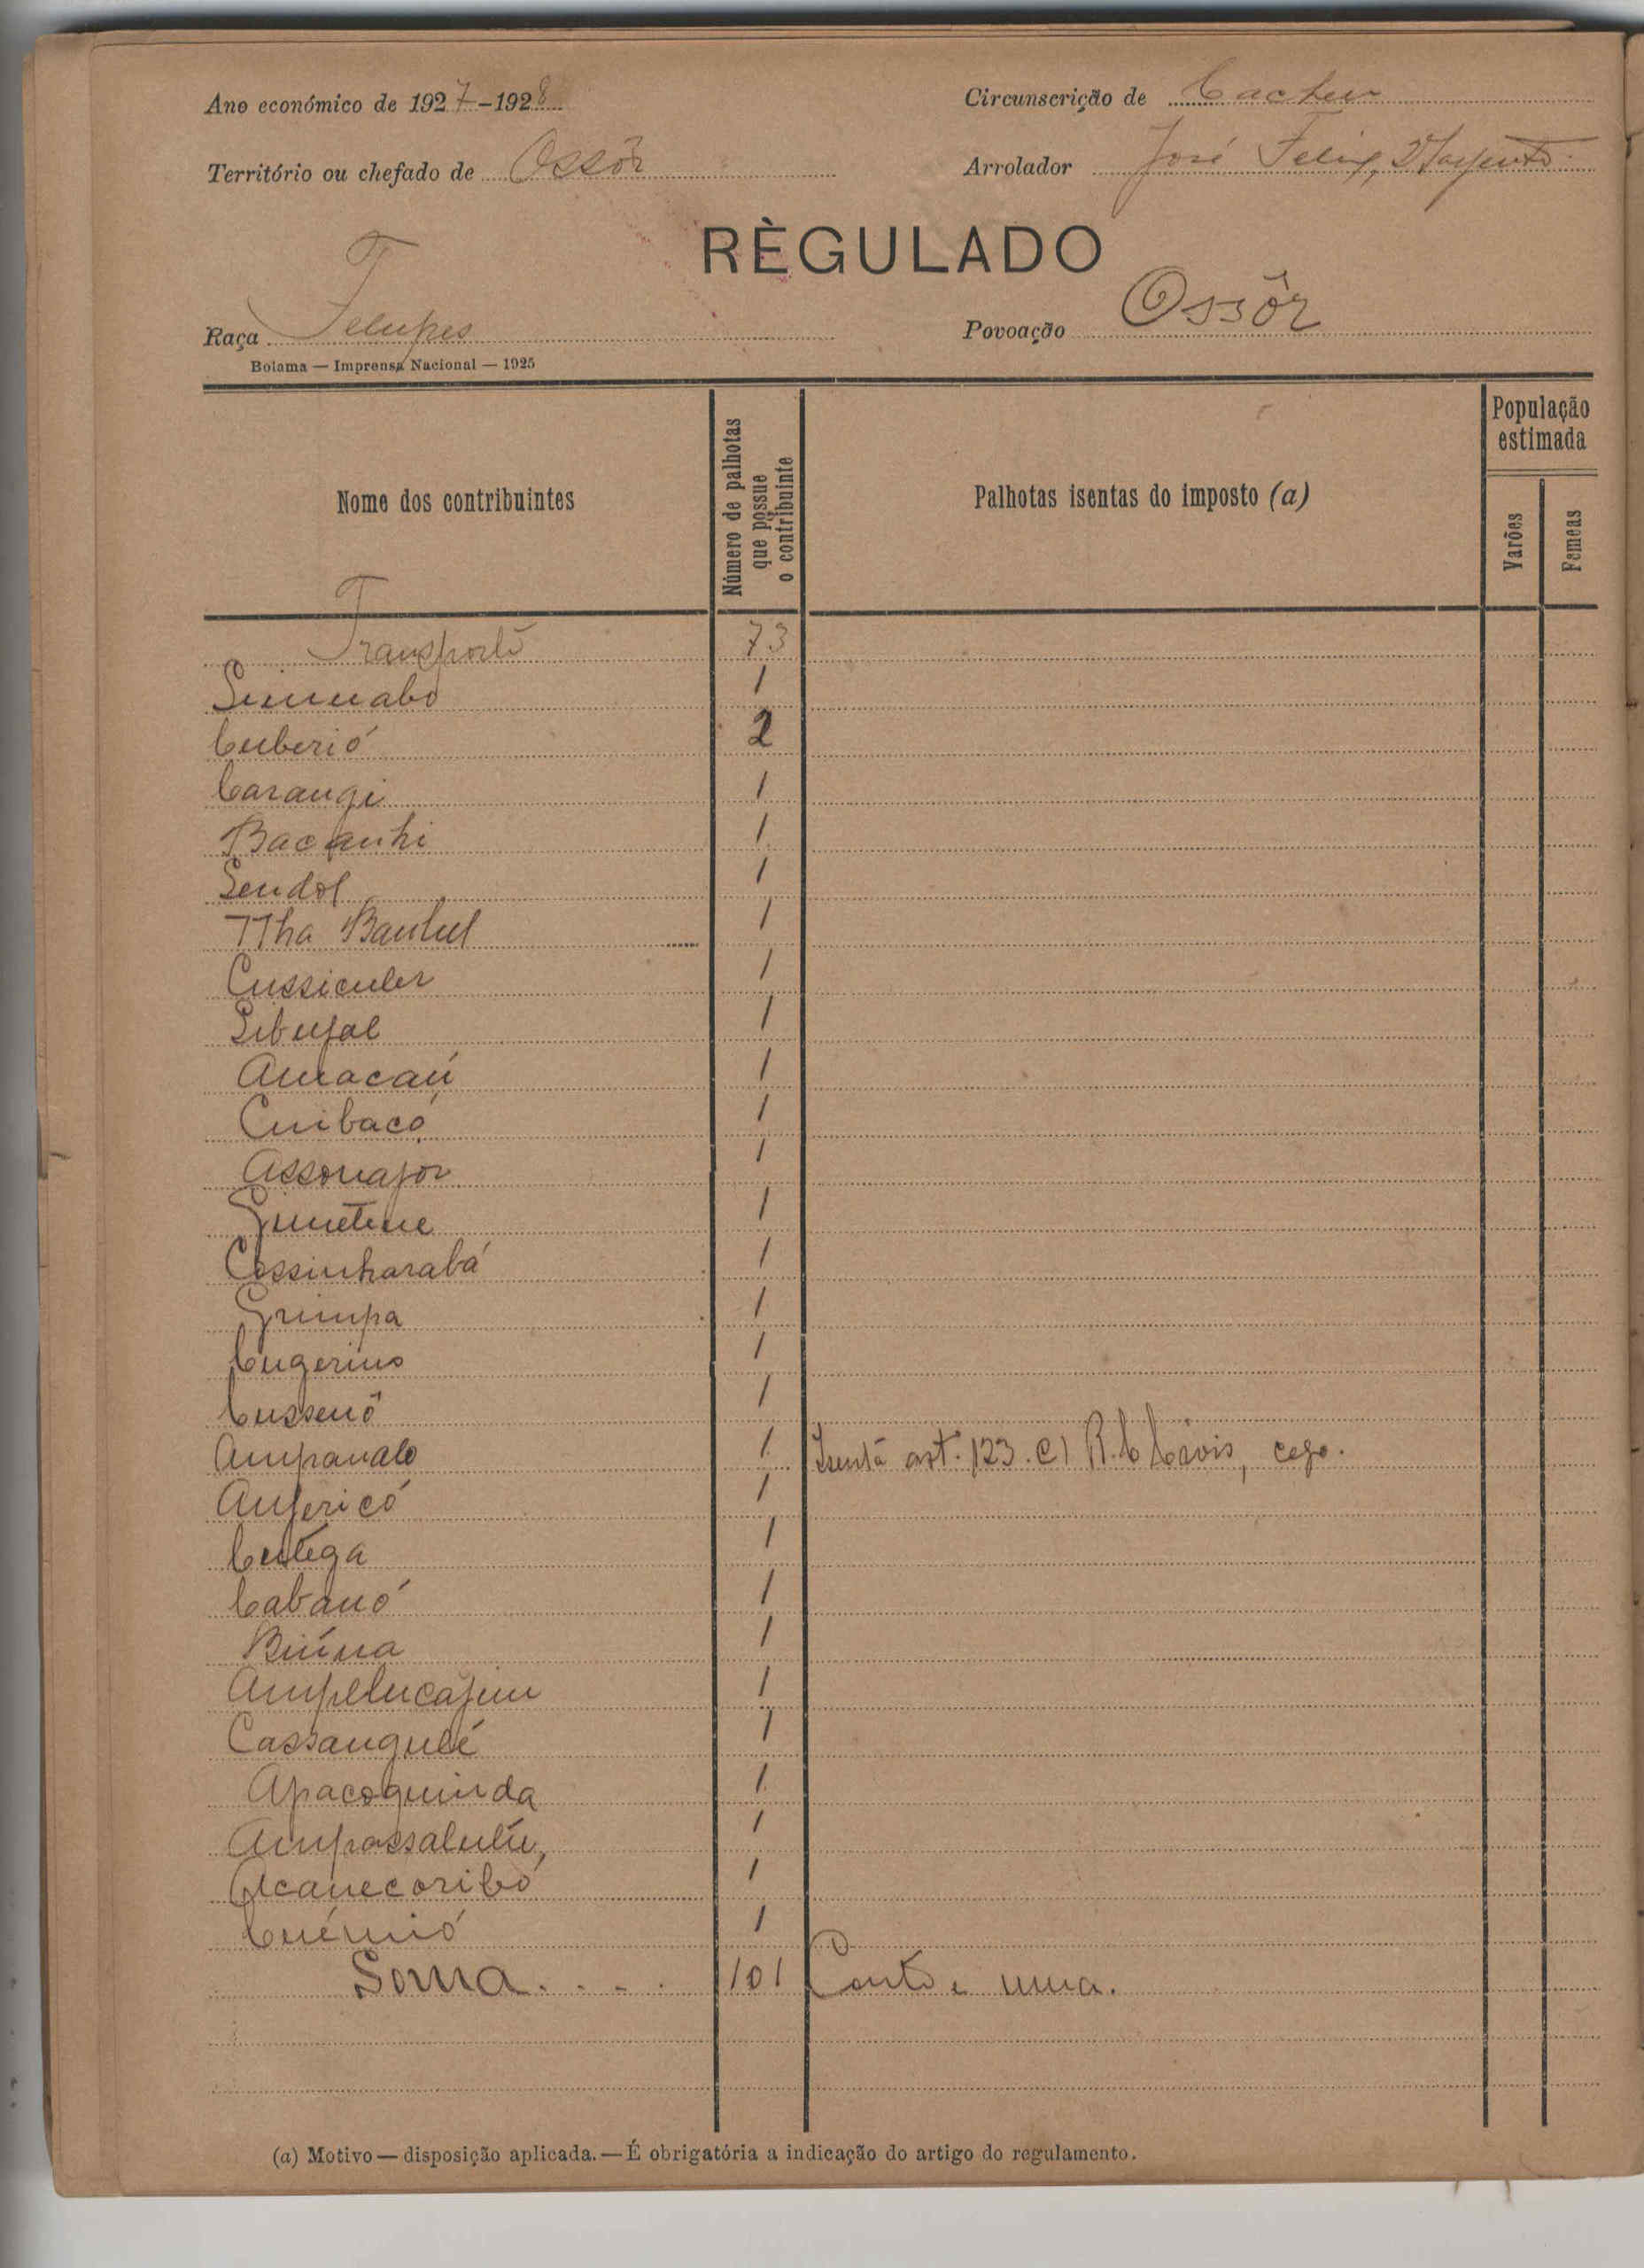 Ano económico de 1927-1928 Circunscrição de Cacheu
Território ou chefado de Ossôr Arrolador José Felix, 2º Sargento
RÈGULADO
Raça Felupes Povoação Ossôr
Bolama — Imprensa Nacional — 1925
Nome dos contribuintes
Número de palhotas
que possue
o contribuinte
Palhotas isentas do imposto (a)
População
estimada
Varões
Femeas
Transporte 73
1
Cuberió 2
Carangi 1
Bacanhi 1
Sendol 1
1
Cussiculer 1
1
1
Cuibacó 1
1
1
Cossinharabá 1
Grimpa 1
Cugerino 1
Cussenô 1
Ampanalo 1 Isenta art. 123. c) R. C. cego.
1
Cutéga 1
Cabanó 1
Biúna 1
Ampelucajim 1
Cassangulé 1
Apacoguinda 1
1
Acanecoribó 1
1
Soma. . . . 101 Cento e uma.
(a) Motivo — disposição aplicada. — É obrigatória a indicação do artigo do regulamento.